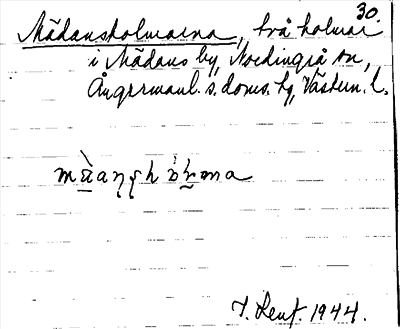 30.
Mädansholmarna, två holmar
i Mädans by, Nordingrå sn,
Ångermanl. s. doms. hg, Västern. l.
T. Lenf. 1944.